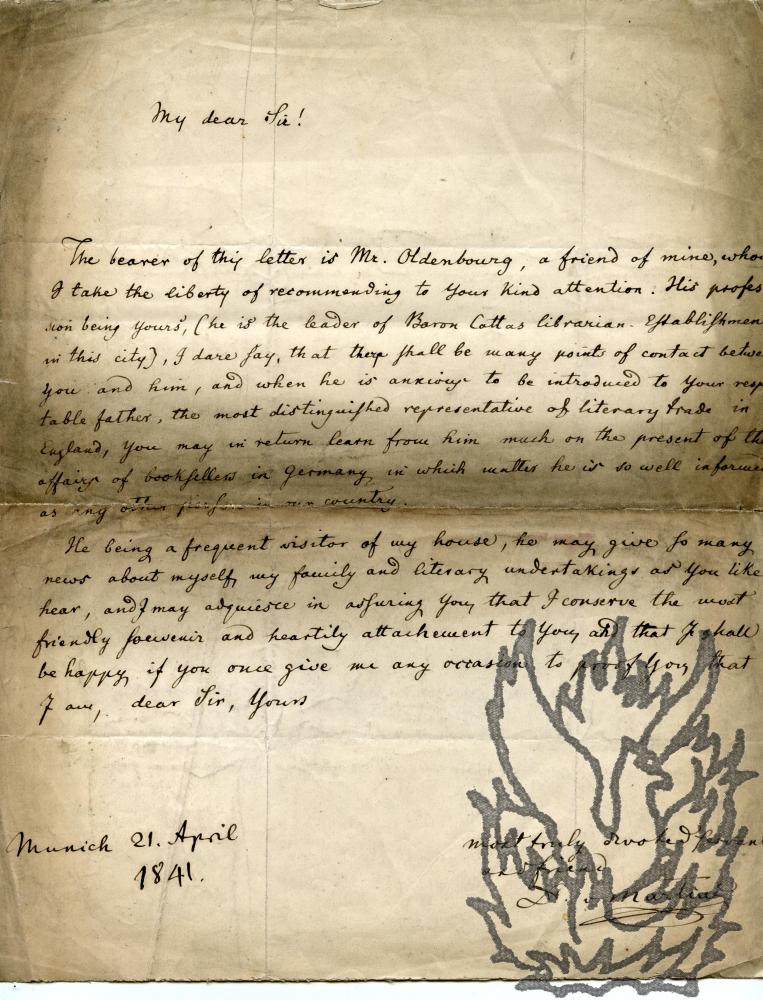 My dear Sir!
The bearer of this letter is Mr. Oldenbourg, a friend of mine, whom
I take the liberty of recommending to Your kind attention. His profes
sion being yours, (he is the leader of Baron Cottas librarian. Establishmen
in this city), I dare say, that there shall be many points of contact betwe
you and him, and when he is anxious to be introduced to Your resp
table father, the most distinguished representative of literary trade in
England, You may in return learn from him much on the present of the
affairs of booksellers in Germany in which matter he is so well informe
as any other person in our country.
He being a frequent visitor of my house, he may give so many
news about myself, my family and literary undertakings as You like
hear, and I may adquiesce in assuring You, that I conserve the most
friendly souvenir and heartily attachement to You, and that I shall
be happy, if you once give me any occasion to proof You, that
I am, dear Sir, Yours
Munich 21. April
1841.
most truly devoted servan
and friend
D. v. Martius